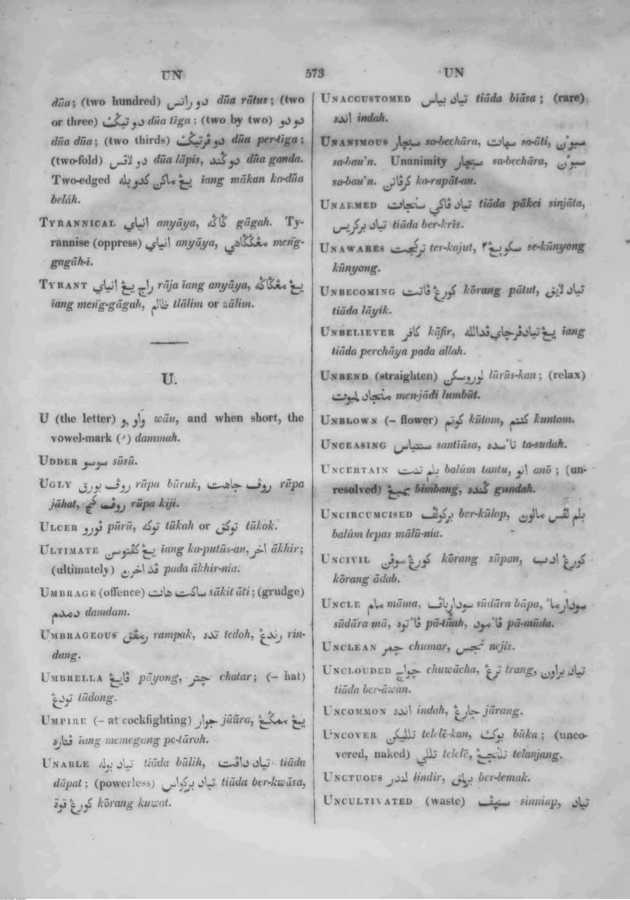 UN 573 UN
dūa; (two hundred) دو راتس dūa rātus; (two
or three) دو تيݢ dūa tīga; (two by two) دو دو
dūa dūa; (two thirds) دو ڤرتيݢ dūa per-tīga;
(two-fold) دو لاڤس dūa lāpis, دو ݢند dūa ganda.
Two-edged يڠ ماكن كدو بله iang mākan ka-dūa
belāh.
TYRANNICAL انياي anyāya, ݢاݢه gāgah. Ty-
rannise (oppress) انياي anyāya, مڠݢاݢهي meng-
gagāh-i.
TYRANT راج يڠ انياي rāja iang anyāya, يڠ مڠݢاݢه
iang meng-gāgah, ظالم tlālim or zālim.
U.
U (the letter) واو و wāu, and when short, the
vowel-mark (ُ) dammah.
UDDER سوسو sūsū.
UGLY روڤ بورق rūpa būruk, روڤ جاهت rūpa
jāhat, روڤ كجي rūpa kiji.
ULCER ڤورو pūrū, توكه tūkah or توكق tūkok.
ULTIMATE يڠ كڤتوسن iang ka-putūs-an, اخر ākhir;
(ultimately) ڤد اخرن pada ākhir-nia.
UMBRAGE (offence) ساكت هات sākit āti; (grudge)
دمدم damdam.
UMBRAGEOUS رمڤق rampak, تده tedoh, رندڠ rin-
dang.
UMBRELLA ڤايڠ pāyong, چتر chatar; (– hat)
تودڠ tūdong.
UMPIRE (– at cockfighting) جوار jūāra, يڠ ممݢڠ
ڤتاره iang memegang pe-tāroh.
UNABLE تياد بوله tiāda būlih, تياد داڤت tiāda
dāpat; (powerless) تياد بركواس tiāda ber-kwāsa,
كورڠ قوة kōrang kuwat.
UNACCUSTOMED تياد بياس tiāda biāsa; (rare)
انده indah.
UNANIMOUS سبچار sa-bechāra, سهات sa-āti,
sa-bau'n. Unanimity سبچار sa-bechāra,
sa-bau'n. كرڤاتن ka-rapāt-an.
UNARMED تياد ڤاكي سنجات tiāda pākei sinjāta,
تياد بركريس tiāda ber-kris.
UNAWARES تركجت ter-kajut, سكوبڠ٢ se-kūnyong
kūnyong.
UNBECOMING كورڠ ڤاتت kōrang pātut, تياد لايق
tiāda lāyik.
UNBELIEVER كافر kāfir, يڠ تياد ڤرچاي ڤد الله iang
tiāda perchāya pada allah.
UNBEND (straighten) لوروسكن lūrūs-kan; (relax)
منجاد لمبوت men-jādi lumbūt.
UNBLOWN (– flower) كوتم kūtom, كنتم kuntom.
UNCEASING سنتياس santiāsa, تا سده ta-sudah.
UNCERTAIN بلم تنت balūm tantu, انو anō; (un-
resolved) بمبڠ bimbang, ݢنده gundah.
UNCIRCUMCISED بركولڤ ber-kūlop, بلم لڤس مالون
balūm lepas mālū-nia.
UNCIVIL كورڠ سوڤن kōrang sūpan, كورڠ ادب
kōrang ādab.
UNCLE مام māma, سودار باڤ sūdāra bāpa, سودار ما
sūdāra mā, ڤا توه pā-tūah, ڤا مود pā-mūda.
UNCLEAN چمر chumar, نجس nejis.
UNCLOUDED چواچ chuwācha, ترڠ trang, تياد براون
tiāda ber-āwan.
UNCOMMON انده indah, جارڠ jārang.
UNCOVER تلليكن telelē-kan, بوك būka; (unco-
vered, naked) تللي telelē, تلنجڠ telanjang.
UNCTUOUS لندر lindir, برلمق ber-lemak.
UNCULTIVATED (waste) سنيڤ sinniap, تياد